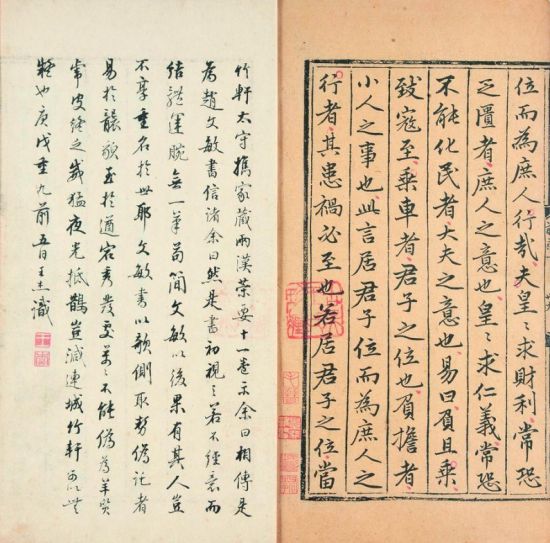 位而為庶人行哉夫皇〻求財利常恐
乏匱者庶人之意也皇〻求仁義常恐
不能化民者大夫之意也易曰負且乘
致寇至乘車者君子之位也負擔者
小人之事也此言居君子位而為庶人之
行者其患禍必至也若居君子之位當
竹軒太守攜家藏兩漢策要十一卷示余曰相傳是
為趙文敏書信諸余曰然是書初視之若不經意而
結體運腕無一筆苟簡文敏以後果有其人豈
不享重名於世耶文敏書以欹側取勢偽託者
易於襲貌至於遒宕秀發處萬〻不能偽為羊質
皮之猛夜光抵鵲豈減連城竹軒可以無
疑也庚戌重九前五日王杰識